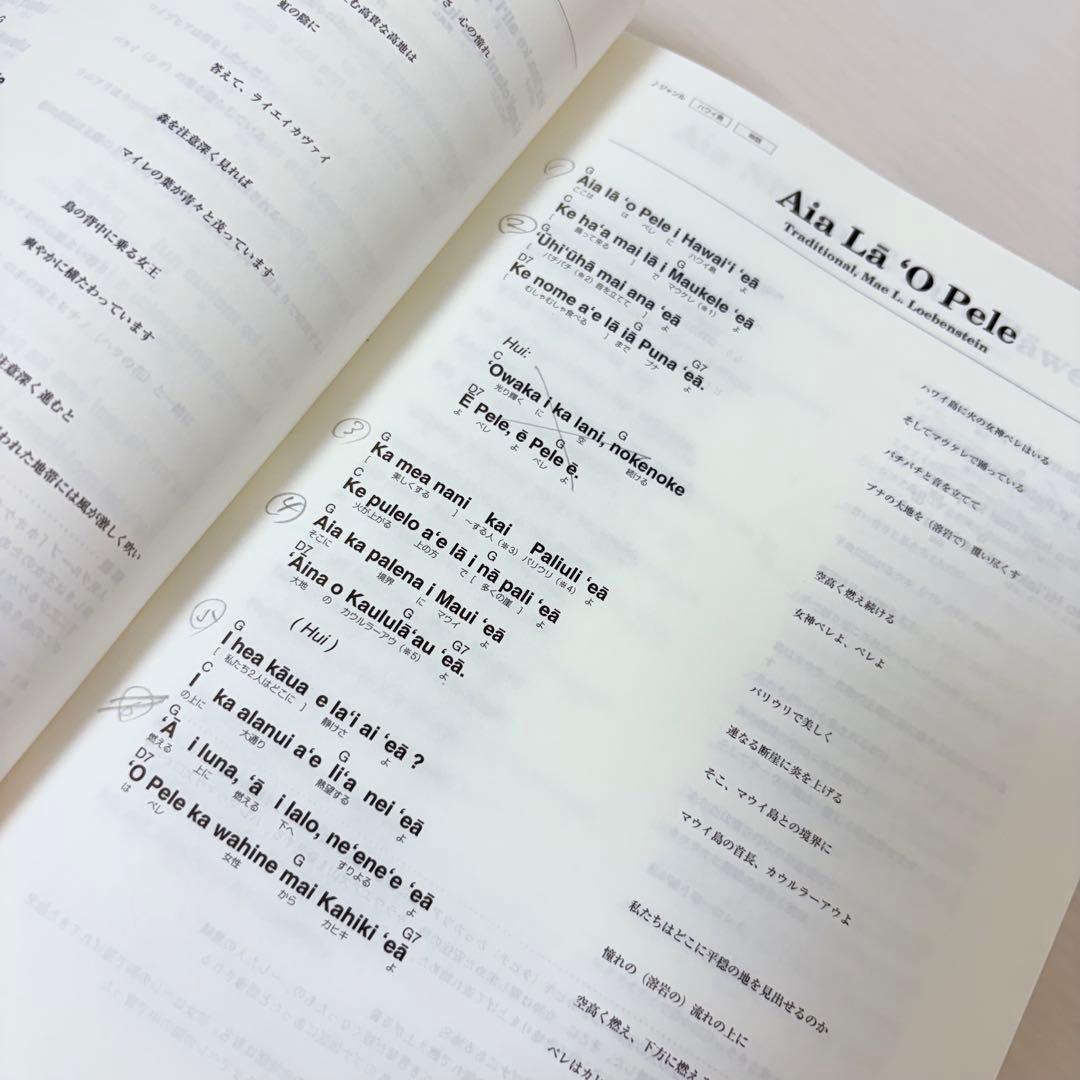 さ、心の憧れ
む高貴な高地は
虹の陰に
答えて、ライエイカヴァイ
森を注意深く見れば
マイレの葉が青々と茂っています
島の背中に乗る女王
爽やかに横たわっています
注意深く進むと
われた地帯には風が激しく吹い
♪ジャンル ハワイ島 神話
Aia Lā ‘O Pele
Traditional, Mae L. Loebenstein
①
G
Aia lā ‘o Pele i Hawai‘i ‘eā
ここは は ペレ に ハワイ島 よ
C G
Ke ha‘a mai lā i Maukele ‘eā
[ 踊って来る ] で マウケレ(※1) よ
②
G
‘Ūhi‘ūhā mai ana ‘eā
[ パチパチ(※2)音を立てて ] よ
D7 G G7
Ke nome a‘e lā iā Puna ‘eā.
[ むしゃむしゃ食べる ] まで プナ よ
Hui:
C G
‘Owaka i ka lani, nokenoke
光り輝く に 空 続ける
D7 G
Ē Pele, ē Pele ē.
よ ペレ よ ペレ よ
③
G
Ka mea nani kai Paliuli ‘eā
[ 美しくする ] ～する人(※3) パリウリ(※4) よ
C G
Ke pulelo a‘e lā i nā pali ‘eā
[ 火が上がる 上の方 で [ 多くの崖 ] よ
④
G
Aia ka palena i Maui ‘eā
そこに 境界 に マウイ よ
D7 G G7
‘Āina o Kaululā‘au ‘eā.
大地 の カウルラーアウ(※5) よ.
(Hui)
5
G
I hea kāua e la‘i ai ‘eā ?
[ 私たち2人はどこに ] 静けさ よ
C G
I ka alanui a‘e li‘a nei ‘eā
の上に 大通り 熱望する よ
G
‘Ā i luna, ‘ā i lalo, ne‘ene‘e ‘eā
燃える 上に 燃える 下へ すりよる よ
D7 G G7
‘O Pele ka wahine mai Kahiki ‘eā
は ペレ 女性 から カヒキ よ
ハワイ島に火の女神ペレはいる
そしてマウケレで踊っている
パチパチと音を立てて
プナの大地を（溶岩で）覆い尽くす
空高く燃え続ける
女神ペレよ、ペレよ
パリウリで美しく
連なる断崖に炎を上げる
そこ、マウイ島との境界に
マウイ島の首長、カウルラーアウよ
私たちはどこに平穏の地を見出せるのか
憧れの（溶岩の）流れの上に
空高く燃え、下方に燃え
ペレはカヒ